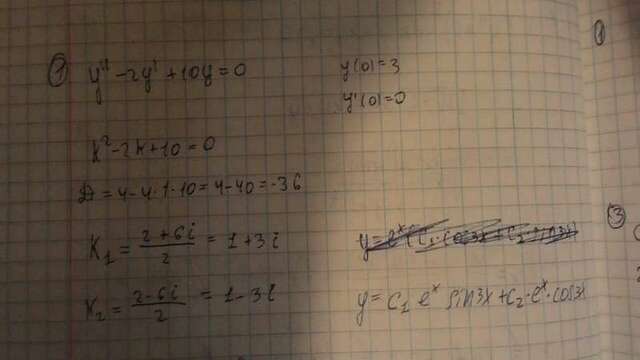 ① y'' - 2y' + 10y = 0
y(0) = 3
y'(0) = 0
k² - 2k + 10 = 0
D = 4 - 4·1·10 = 4 - 40 = -36
K₁ = (2 + 6i)/2 = 1 + 3i
K₂ = (2 - 6i)/2 = 1 - 3i
y = C₁ eˣ sin3x + C₂·eˣ·cos3x
③